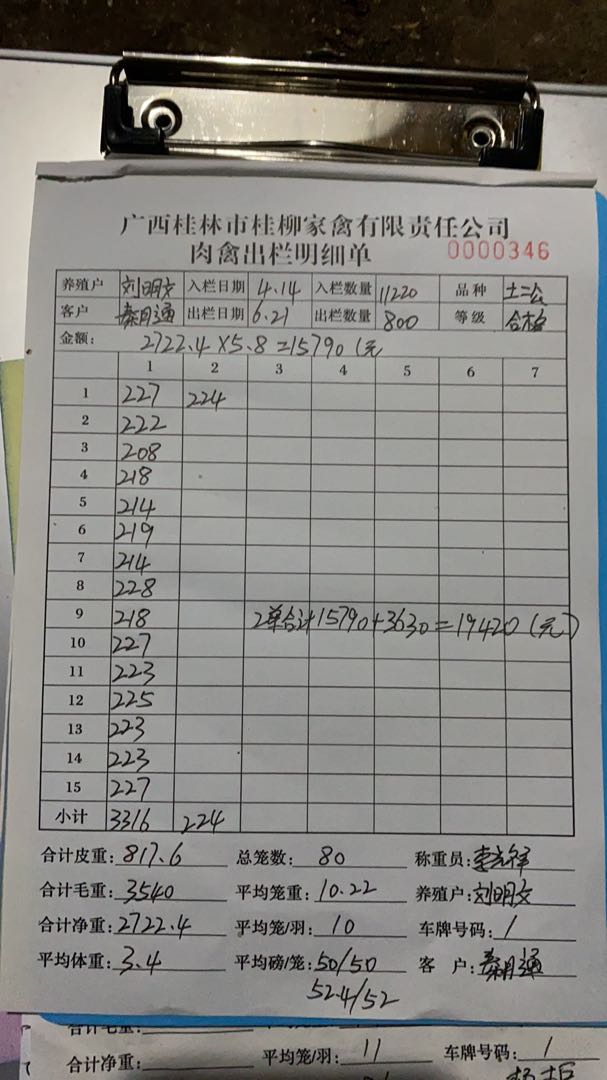 广西桂林市桂柳家禽有限责任公司
肉禽出栏明细单 0000346
养殖户 刘明文 入栏日期 4.14 入栏数量 11220 品种 土二公
客户 秦月通 出栏日期 6.21 出栏数量 800 等级 合格
金额: 2722.4×5.8=15790(元
1 2 3 4 5 6 7
1 227 224
2 222
3 208
4 218
5 214
6 219
7 214
8 228
9 218 2单合计15790+3630=19420(元)
10 227
11 223
12 225
13 223
14 223
15 227
小计 3316 224
合计皮重: 817.6 总笼数: 80 称重员:
合计毛重: 3540 平均笼重: 10.22 养殖户: 刘明文
合计净重: 2722.4 平均笼/羽: 10 车牌号码: /
平均体重: 3.4 平均磅/笼: 50/50 客户: 秦月通
52.4/52
合计毛重:
合计净重: 平均笼/羽: 11 车牌号码: 1